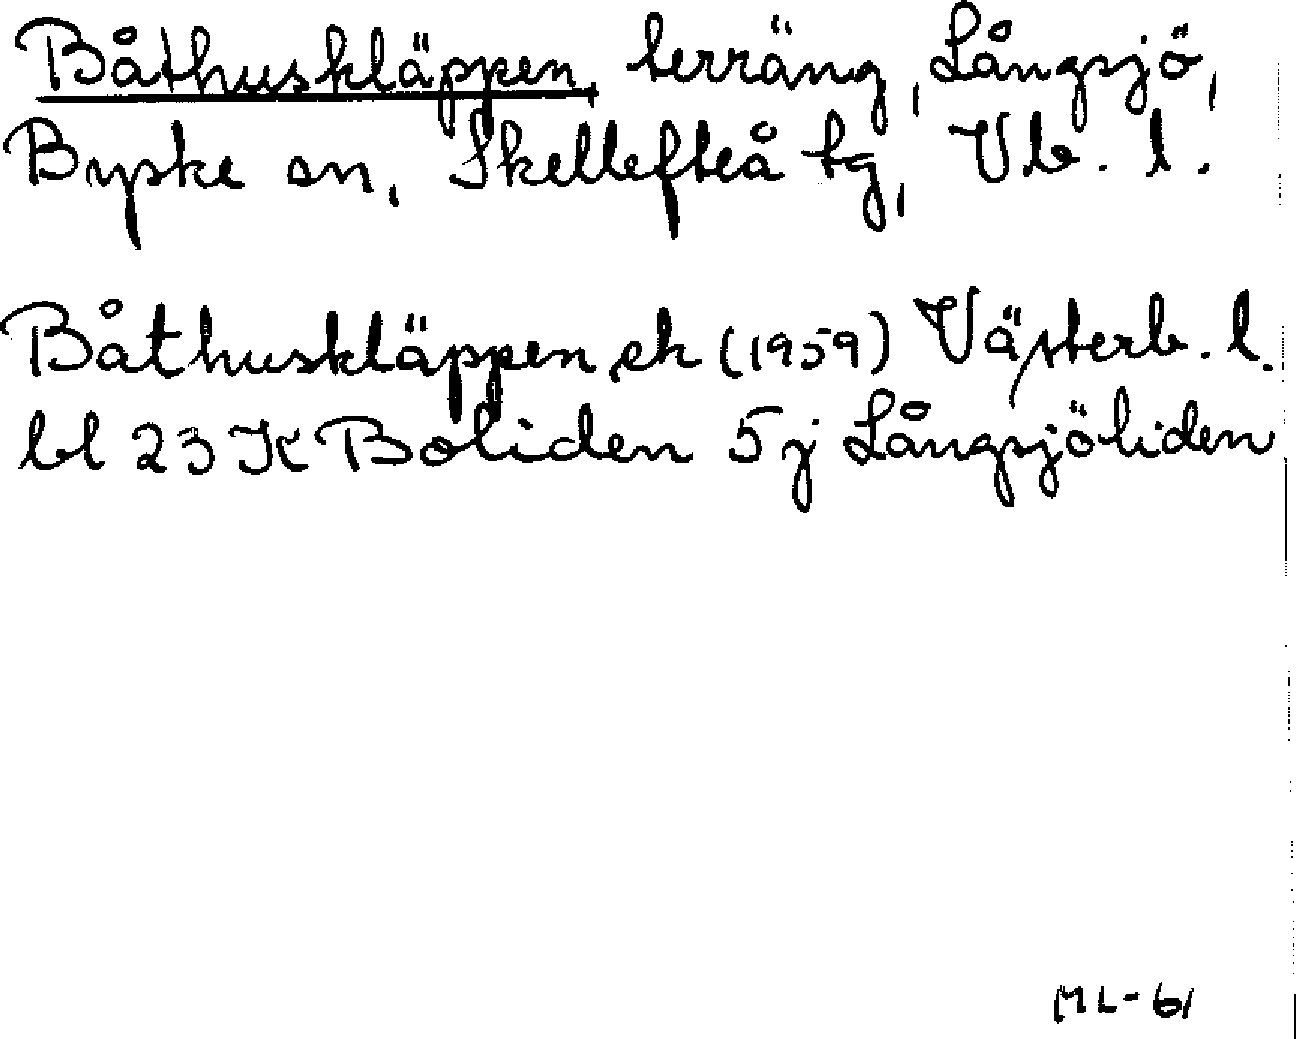 Båthuskläppen, terräng, Långsjö,
Byske sn, Skellefteå tg, Vb. l.
Båthuskläppen ek (1959) Västerb. l.
bl 23 K Boliden 5 j Långsjöliden
ML-61